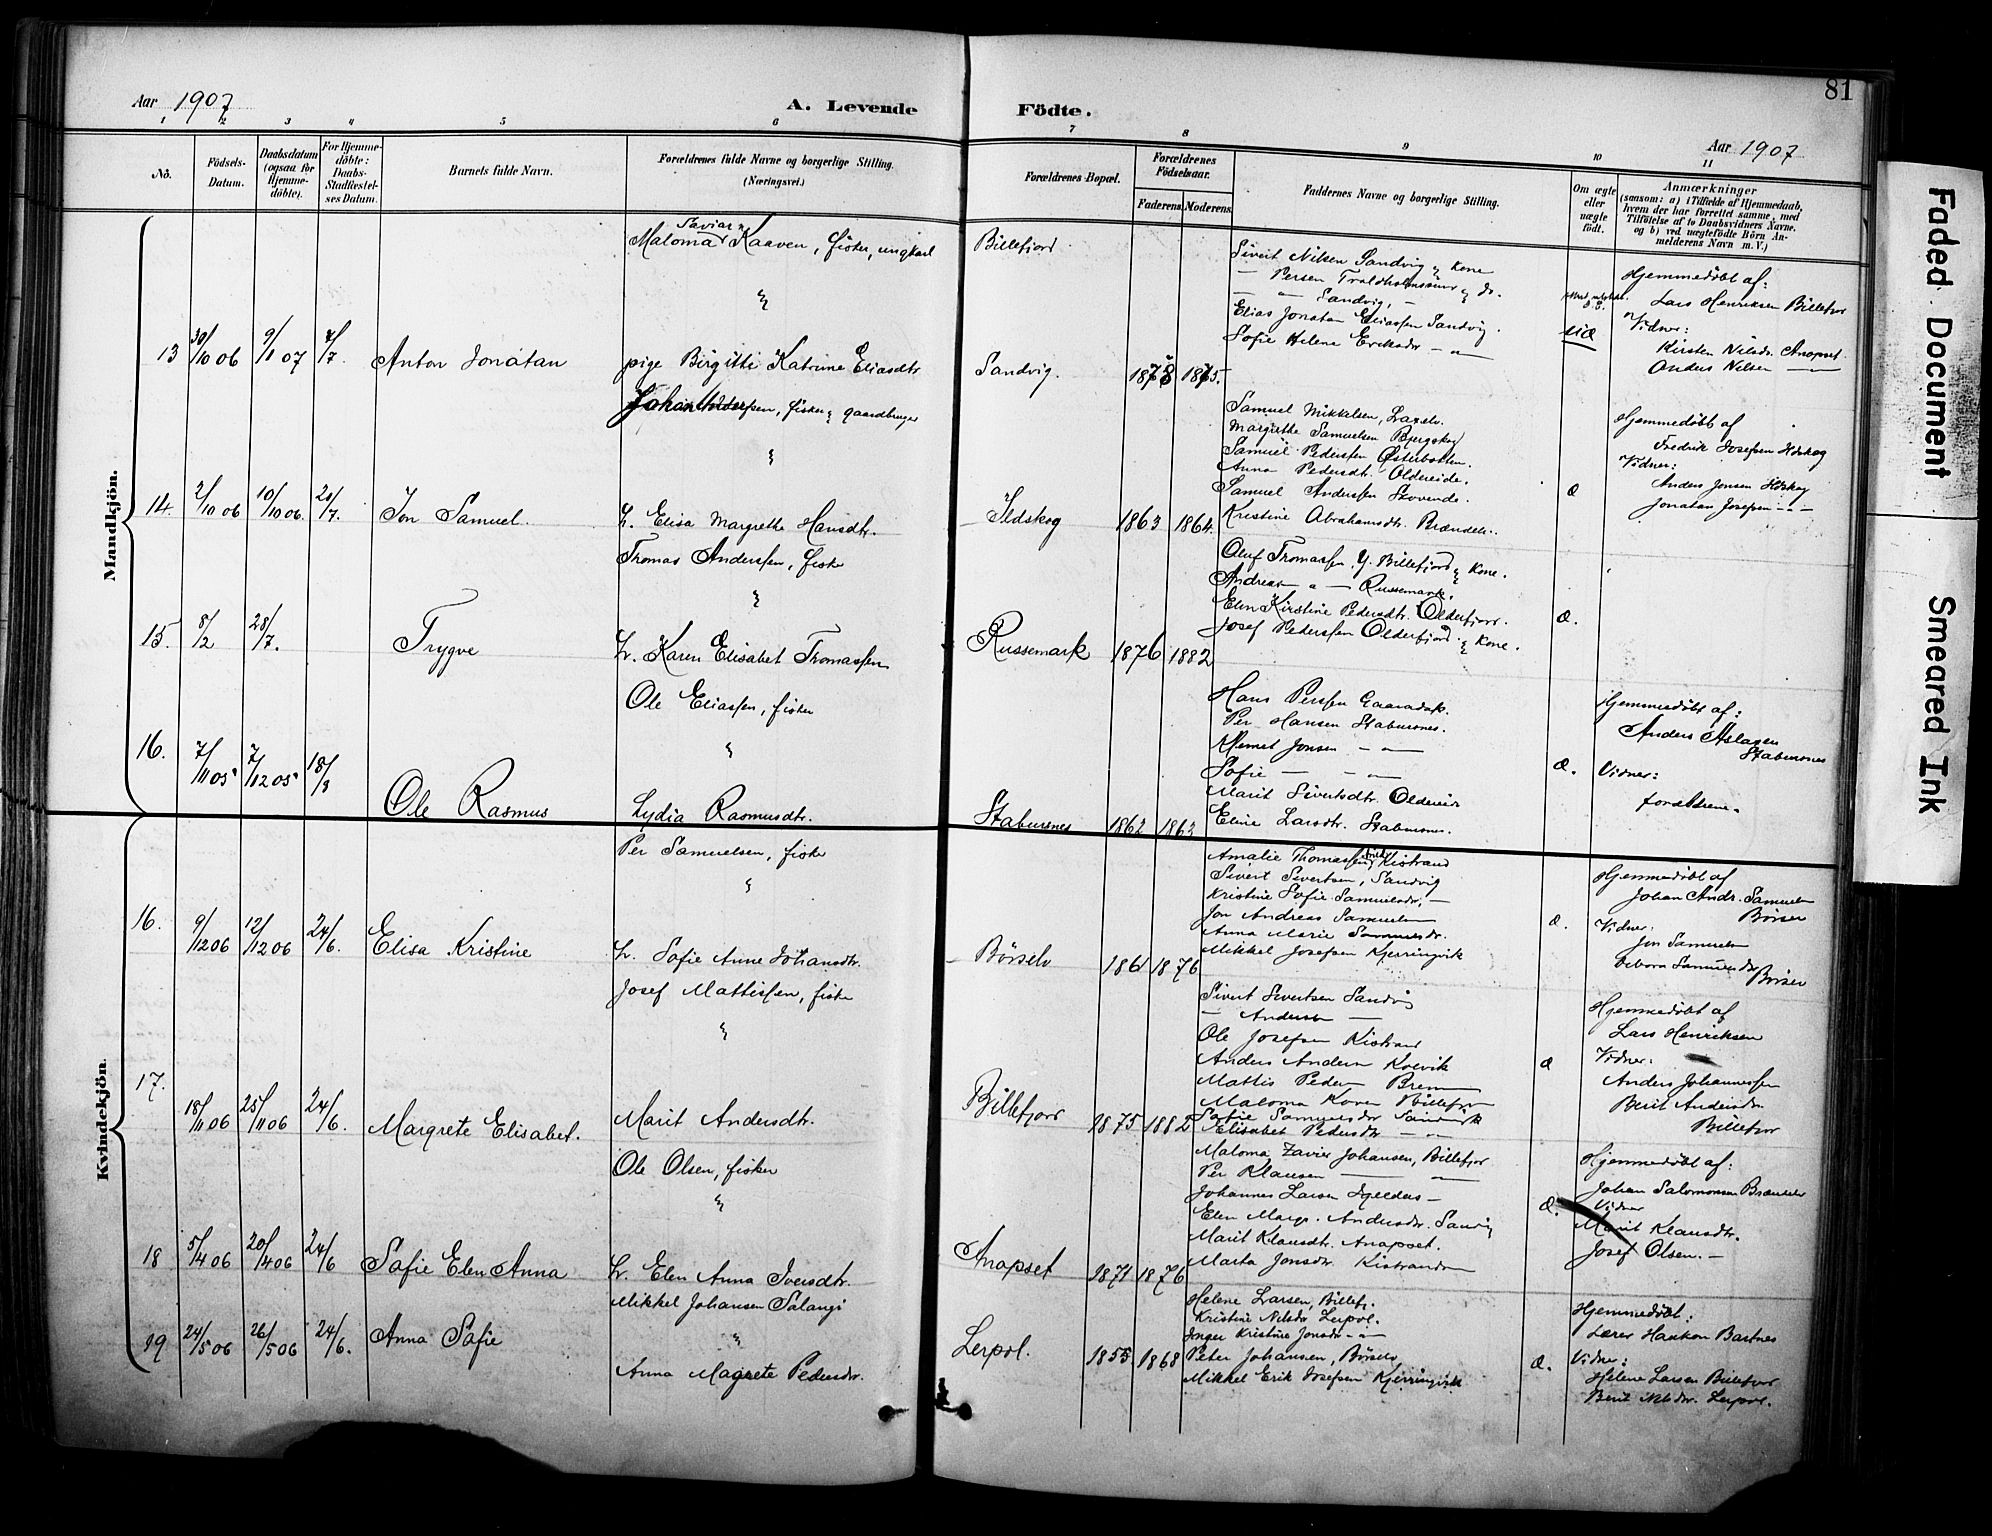 81
Aar 1907
A. Levende
Födte.
Aar 1907
1 2 3 4 5 6 7 8 9 10 11
No.
Födsels-Datum.
Daabsdatum (ogsaa for Hjemme-döbte).
For Hjemme-döbte: Daabs-Stadfæstel-ses Datum.
Barnets fulde Navn.
Forældrenes fulde Navne og borgerlige Stilling. (Næringsvei.)
Forældrenes Bopæl.
Forældrenes Födselsaar.
Faderens. Moderens.
Faddernes Navne og borgerlige Stilling.
Om ægte eller uægte födt.
Anmærkninger
(saasom: a) i Tilfælde af Hjemmedaab, hvem der har forrettet samme, med Tilföielse af to Daabsvidners Navne. og b) ved uægtefödte Börn An-melderens Navn m. V.)
Mandkjön.
Savian
Maloma Kaaven, fisker, ungkarl
Billefjord
13 30/10 06 9/1 07 7/7. Anton Jonatan
pige Birgitte Katrine Eliasdtr
Sandvig. 1878 1875.
Sivert Nilsen Sandvig & Kone
— Persen Troldholmsund & do.
— " — Sandvig, —
Elias Jonatan Eliassen Sandvig.
Sofie Helene Eriksdr — " —
uæ
Hjemmedøbt af:
Lars Henriksen Billefjor
Vidner:
Kirsten Nilsdr. Anopset
Anders Nilsen — " —
Johan Anderssen, fisker & gaardbruger
14. 2/10 06 10/10 06. 20/7. Jon Samuel.
h. Elisa Margrethe Hansdtr.
Ildskog 1863 1864.
Samuel Mikkalsen, Laxelv.
Margrethe Samuelsen Bjergskog
Samuel Pederssen Østerbotten.
Anna Pedersdtr. Oldereide.
Samuel Anderssen Skovende.
Kristine Abrahamsdtr. Brændelv.
æ
Hjemmedøbt af
Fredrik Josefsen Ildskog
Vidner:
Anders Jonsen Ildskog
Jonatan Josefsen — " —
Thomas Anderssen, fisker
15. 8/2 28/7. Trygve
h. Karen Elisabet Thomassen
Russemark 1876 1882
Oluf Thomassen, Y. Billefjord & Kone.
Andreas — " — Russemark.
Elen Kirstine Pedersdtr. Olderfjor.
Josef Pederssen Olderfjord & Kone.
æ.
Ole Eliassen, fisker
16. 7/11 05 7/12 05 18/3 Ole Rasmus
Lydia Rasmusdtr.
Stabursnes 1862 1863
Hans Perssen
Per Hansen Stabursnes.
Klemet Jonsen — " —
Sofie — " —
Marit Sivertsdtr. Oldereid
Eline Larsdtr. Stabursnes.
æ.
Hjemmedøbt af:
Anders Aslagsen
Stabursnes
Vidner:
forældrene.
Kvindekjön.
Per Samuelsen, fisker
16. 9/12 06 12/12 06 24/6. Elisa Kristine
h. Sofie Anne Johansdtr.
Børselv 1861 1876
Amalie Thomassen Kistrand
Sivert Sivertsen, Sandvig
Kristine Sofie Samuelsdr. —
Jon Andreas Samuelsen
Anna Marie Samuelsdr.
Mikkel Josefsen Kjerringvik
æ.
Hjemmedøbt af
Johan Andr. Samuelsen
Børselv
Vidner:
Jon Samuelsen
Debora Samuelsdr
Børselv
Josef Mattissen, fisker
17. 18/11 06 25/11 06 24/6. Margrete Elisabet.
Marit Andersdtr.
Billefjor 1875 1882
Sivert Sivertsen Sandvig
— Andersen —
Ole Josefsen Kistrand
Anders Andersen Kolvik
Mattis Pedersen
Maloma Koven Billefjor
Sofie Samuelsdr Sandvik
Elisabet Pedersdtr — " —
æ
Hjemmedøbt af
Lars Henriksen
Vidner:
Anders Johannessen
Berit Andersdr.
Billefjor
Ole Olsen, fisker
18 5/4 06 20/4 06 24/6 Sofie Elen Anna
h. Elen Anna Iversdtr.
Anopset 1871 1876
Maloma Zavier Johansen, Billefjor
Per Klausen — " —
Johannes Larsen —
Elen Margr. Andersdr. Sandvig
Marit Klausdtr. Anopset.
Marta Jonsdr. Kistrand
æ.
Hjemmedøbt af:
Johan Salomonsen Brændelv
Vidner
Marit Klausdtr.
Josef Olsen. —
Mikkel Johansen Salangi
19 24/5 06 26/5 06 24/6. Anna Sofie
Anna Magrete Pedersdr.
Lerpol. 1855 1868
Helene Larsen, Billefj.
Kristine Nilsdr Lerpol.
Inger Kristine Jonsdr — " —
Peter Johansen, Børselv
Mikkel Erik Josefsen Kjerringvik
æ.
Hjemmedøbt:
Lærer Haakon Bartnes
Vidner:
Helene Larsen Billefjor
Berit Nilsdr. Lerpol.
Faded Document
Smeared Ink